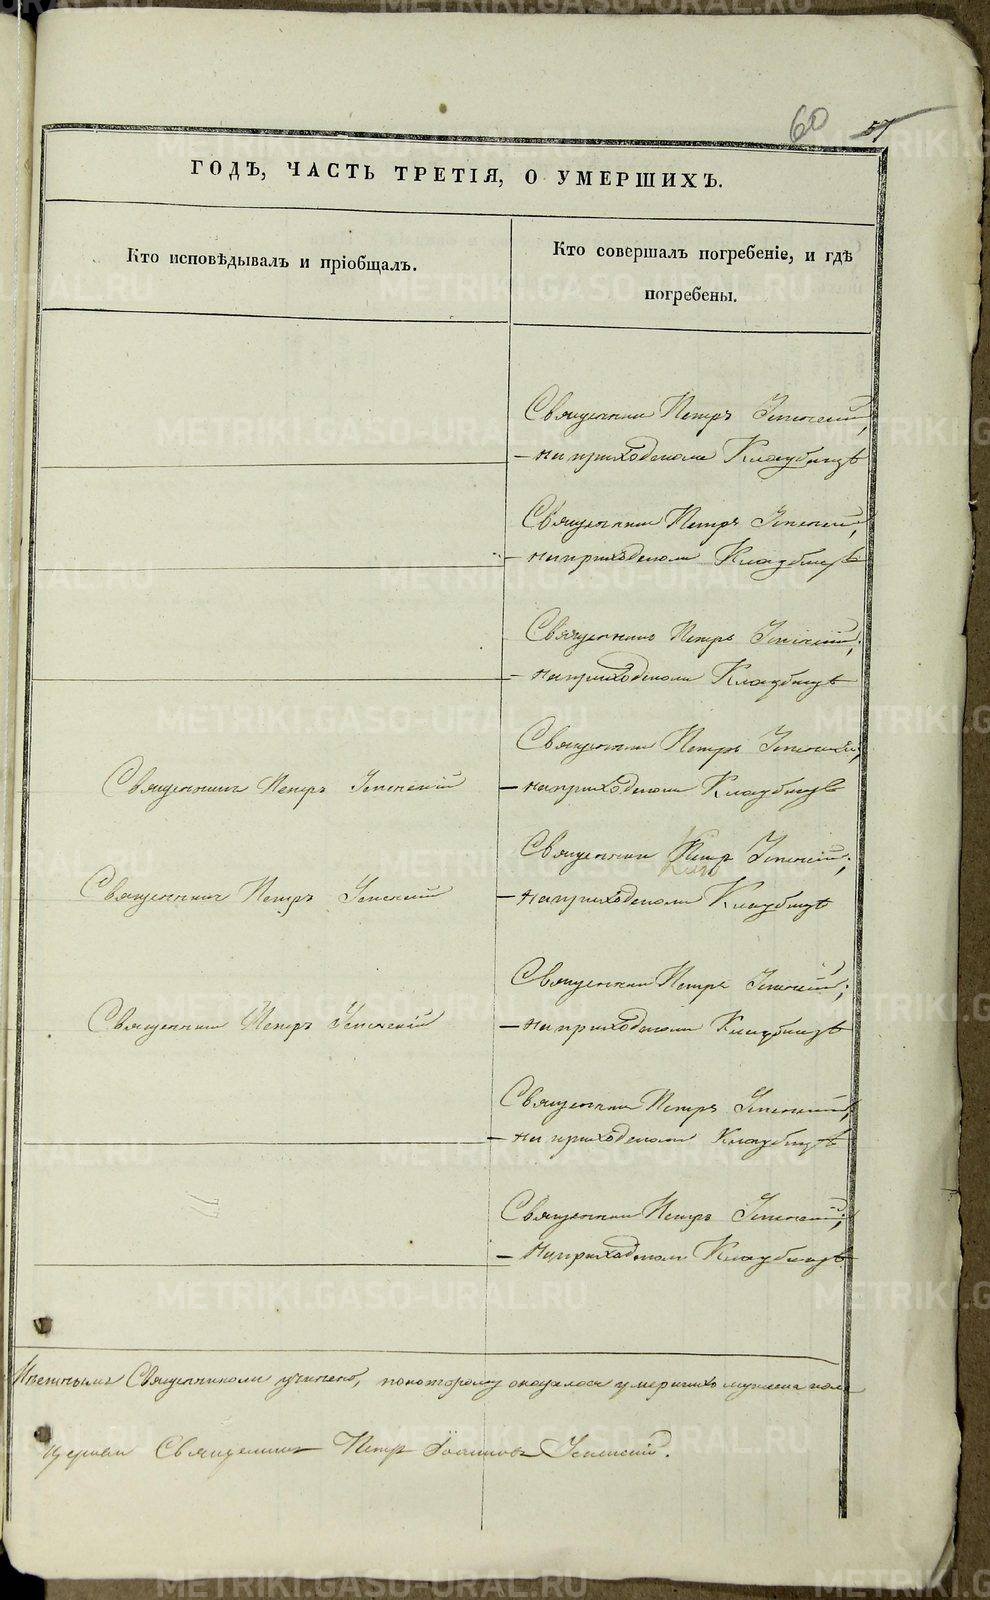 60
57
ГОДЪ, ЧАСТЬ ТРЕТІЯ, О УМЕРШИХЪ.
Кто исповѣдывалъ и пріобщалъ.
Кто совершалъ погребеніе, и гдѣ
погребены.
Священник Петръ Успенскій,
на приходском Кладбищѣ
Священник Петръ Успенскій,
на приходском Кладбищѣ
Священникъ Петръ Успенскій;
на приходском Кладбищѣ
Священник Петръ Успенскій;
Священникъ Петръ Успенскій
на приходском Кладбищѣ
Священник Петр Успенскій;
Священникъ Петръ Успенскій
на приходском Кладбищѣ
Священник Петръ Успенскій;
Священник Петръ Успенскій
на приходском Кладбищѣ
Священник Петръ Успенскій;
на приходском Кладбищѣ
Священник Петръ Успенскій;
на приходском Кладбищѣ
Священником учинено, по которому оказалось умершихъ мужска пола
церкви Священник Петр Іоаннов Успенский.
METRIKI.GASO-URAL.RU